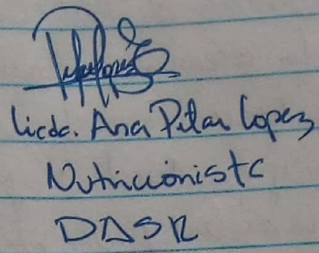 Licda. Ana Pilar Lopez
Nutricionista
DASR